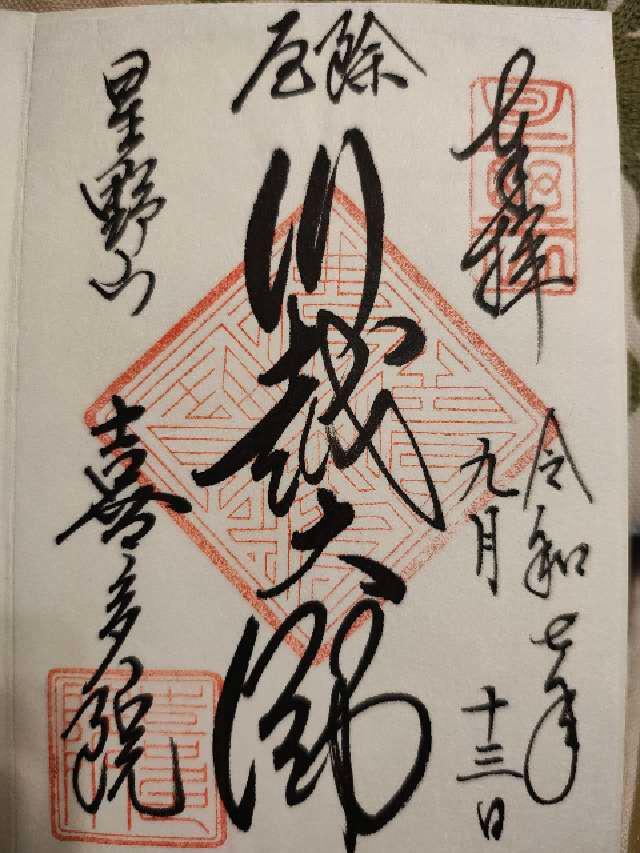 奉拝
令和七年
九月十三日
厄除
川越大師
星野山
喜多院